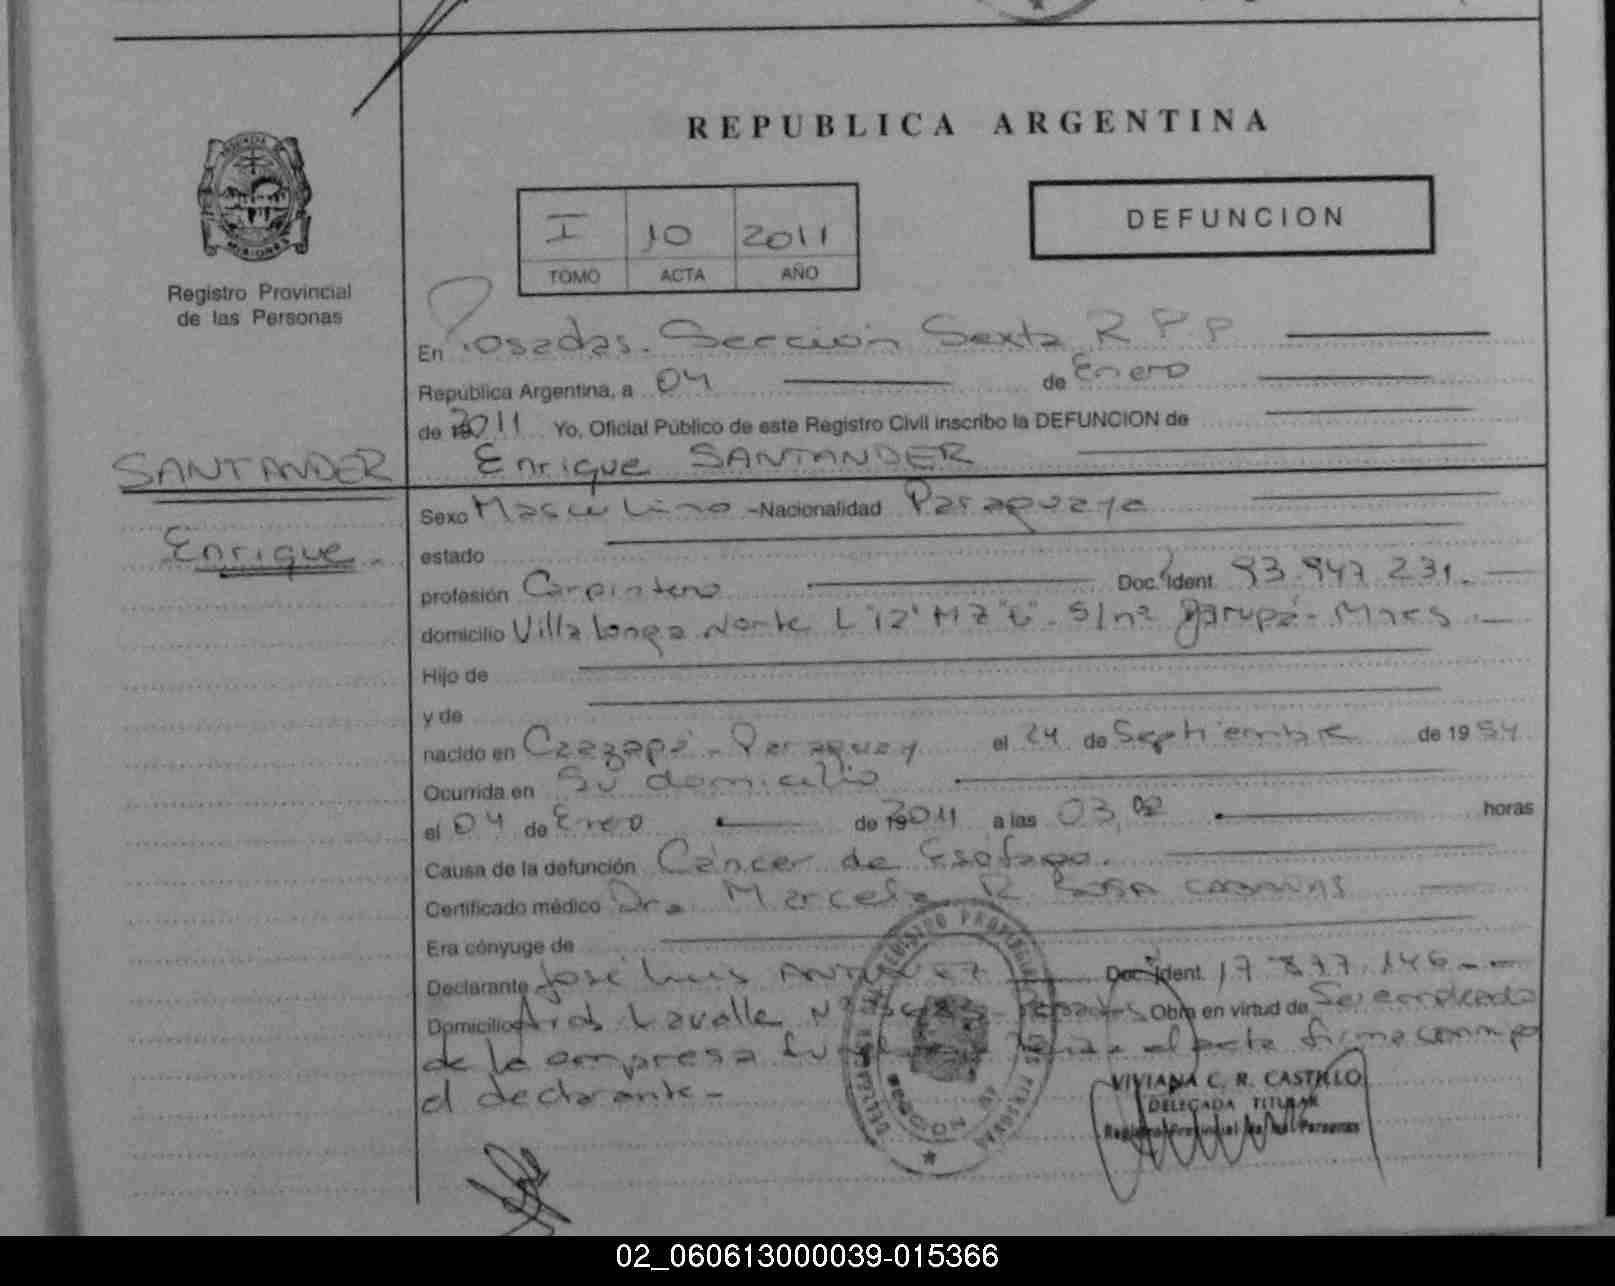 REPUBLICA ARGENTINA
DEFUNCION
I 10 2011
TOMO ACTA AÑO
Registro Provincial
de las Personas
En Posadas. Sección Sexta R P P
República Argentina, a 04 de Enero
de 2011 Yo, Oficial Público de este Registro Civil inscribo la DEFUNCION de
SANTANDER
Enrique SANTANDER
Enrique
Sexo Masculino - Nacionalidad Paraguaya
estado
profesión Carpintero Doc. Ident. 93.947.231.
domicilio Villalonga Norte L "12" MZ S/nº Garupá - Mnes
Hijo de
y de
nacido en Caazapá - Paraguay el 24 de Septiembre de 1954
Ocurrida en Su domicilio
el 04 de Enero de 2011 a las 03,02 horas
Causa de la defunción Cáncer de Esófago.
Certificado médico Dra Marcela R SOSA CABAÑAS
Era cónyuge de
Declarante José Luis Doc. Ident. 17.877.146
Domicilio Lavalle Nº Obra en virtud de Ser empleado
de la empresa el acta firma conmigo
el declarante -
VIVIANA C. R. CASTILLO
DELEGADA TITULAR
Registro Provincial de las Personas
02_060613000039-015366